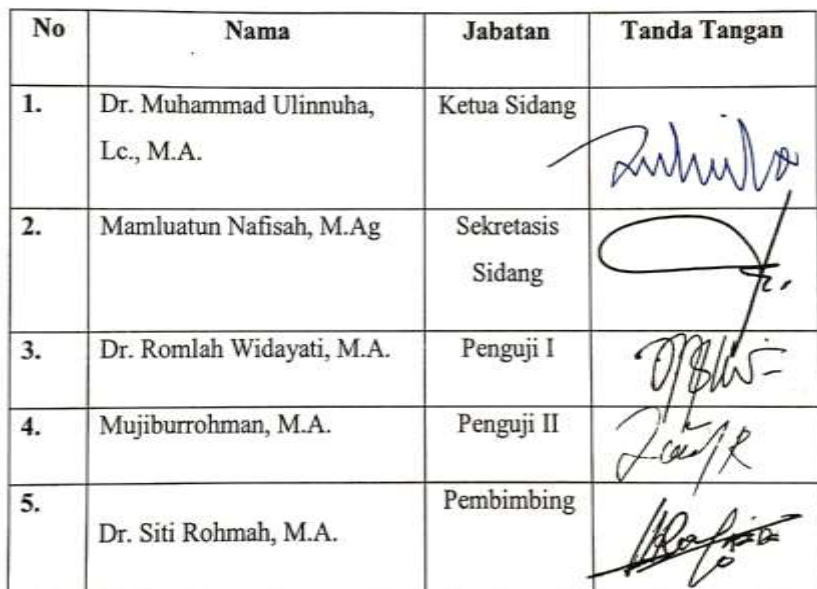 No Nama Jabatan Tanda Tangan
1. Dr. Muhammad Ulinnuha, Ketua Sidang
Lc., M.A.
2. Mamluatun Nafisah, M.Ag Sekretasis
Sidang
3. Dr. Romlah Widayati, M.A. Penguji I
4. Mujiburrohman, M.A. Penguji II
5. Pembimbing
Dr. Siti Rohmah, M.A.